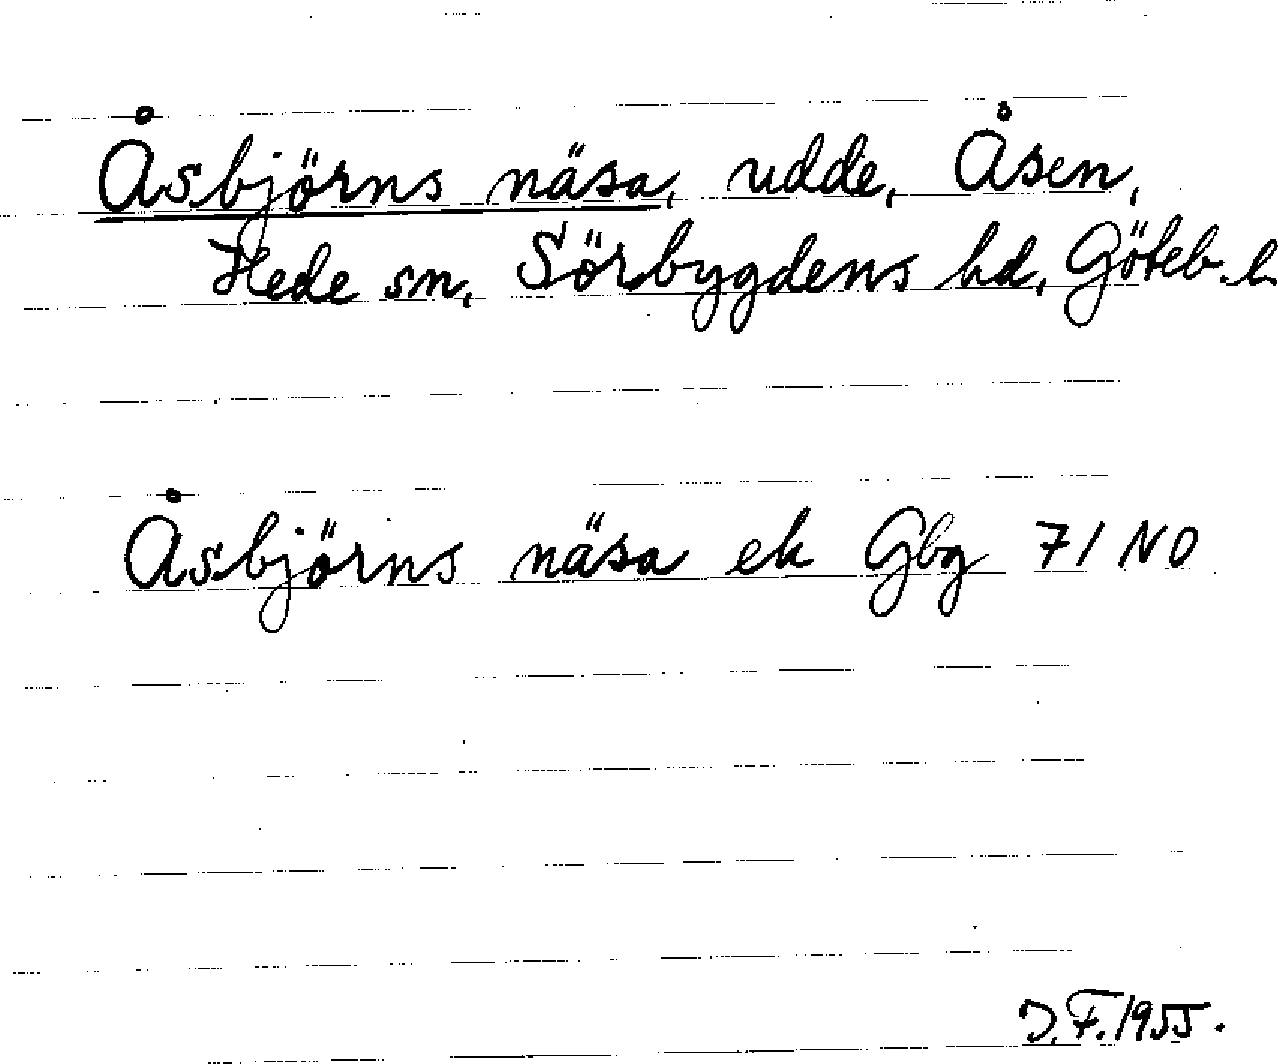 Åsbjörns näsa, udde, Åsen,
Hede sn, Sörbygdens hd, Göteb. l
Åsbjörns näsa ek Gbg 71 NO
J.F. 1955.